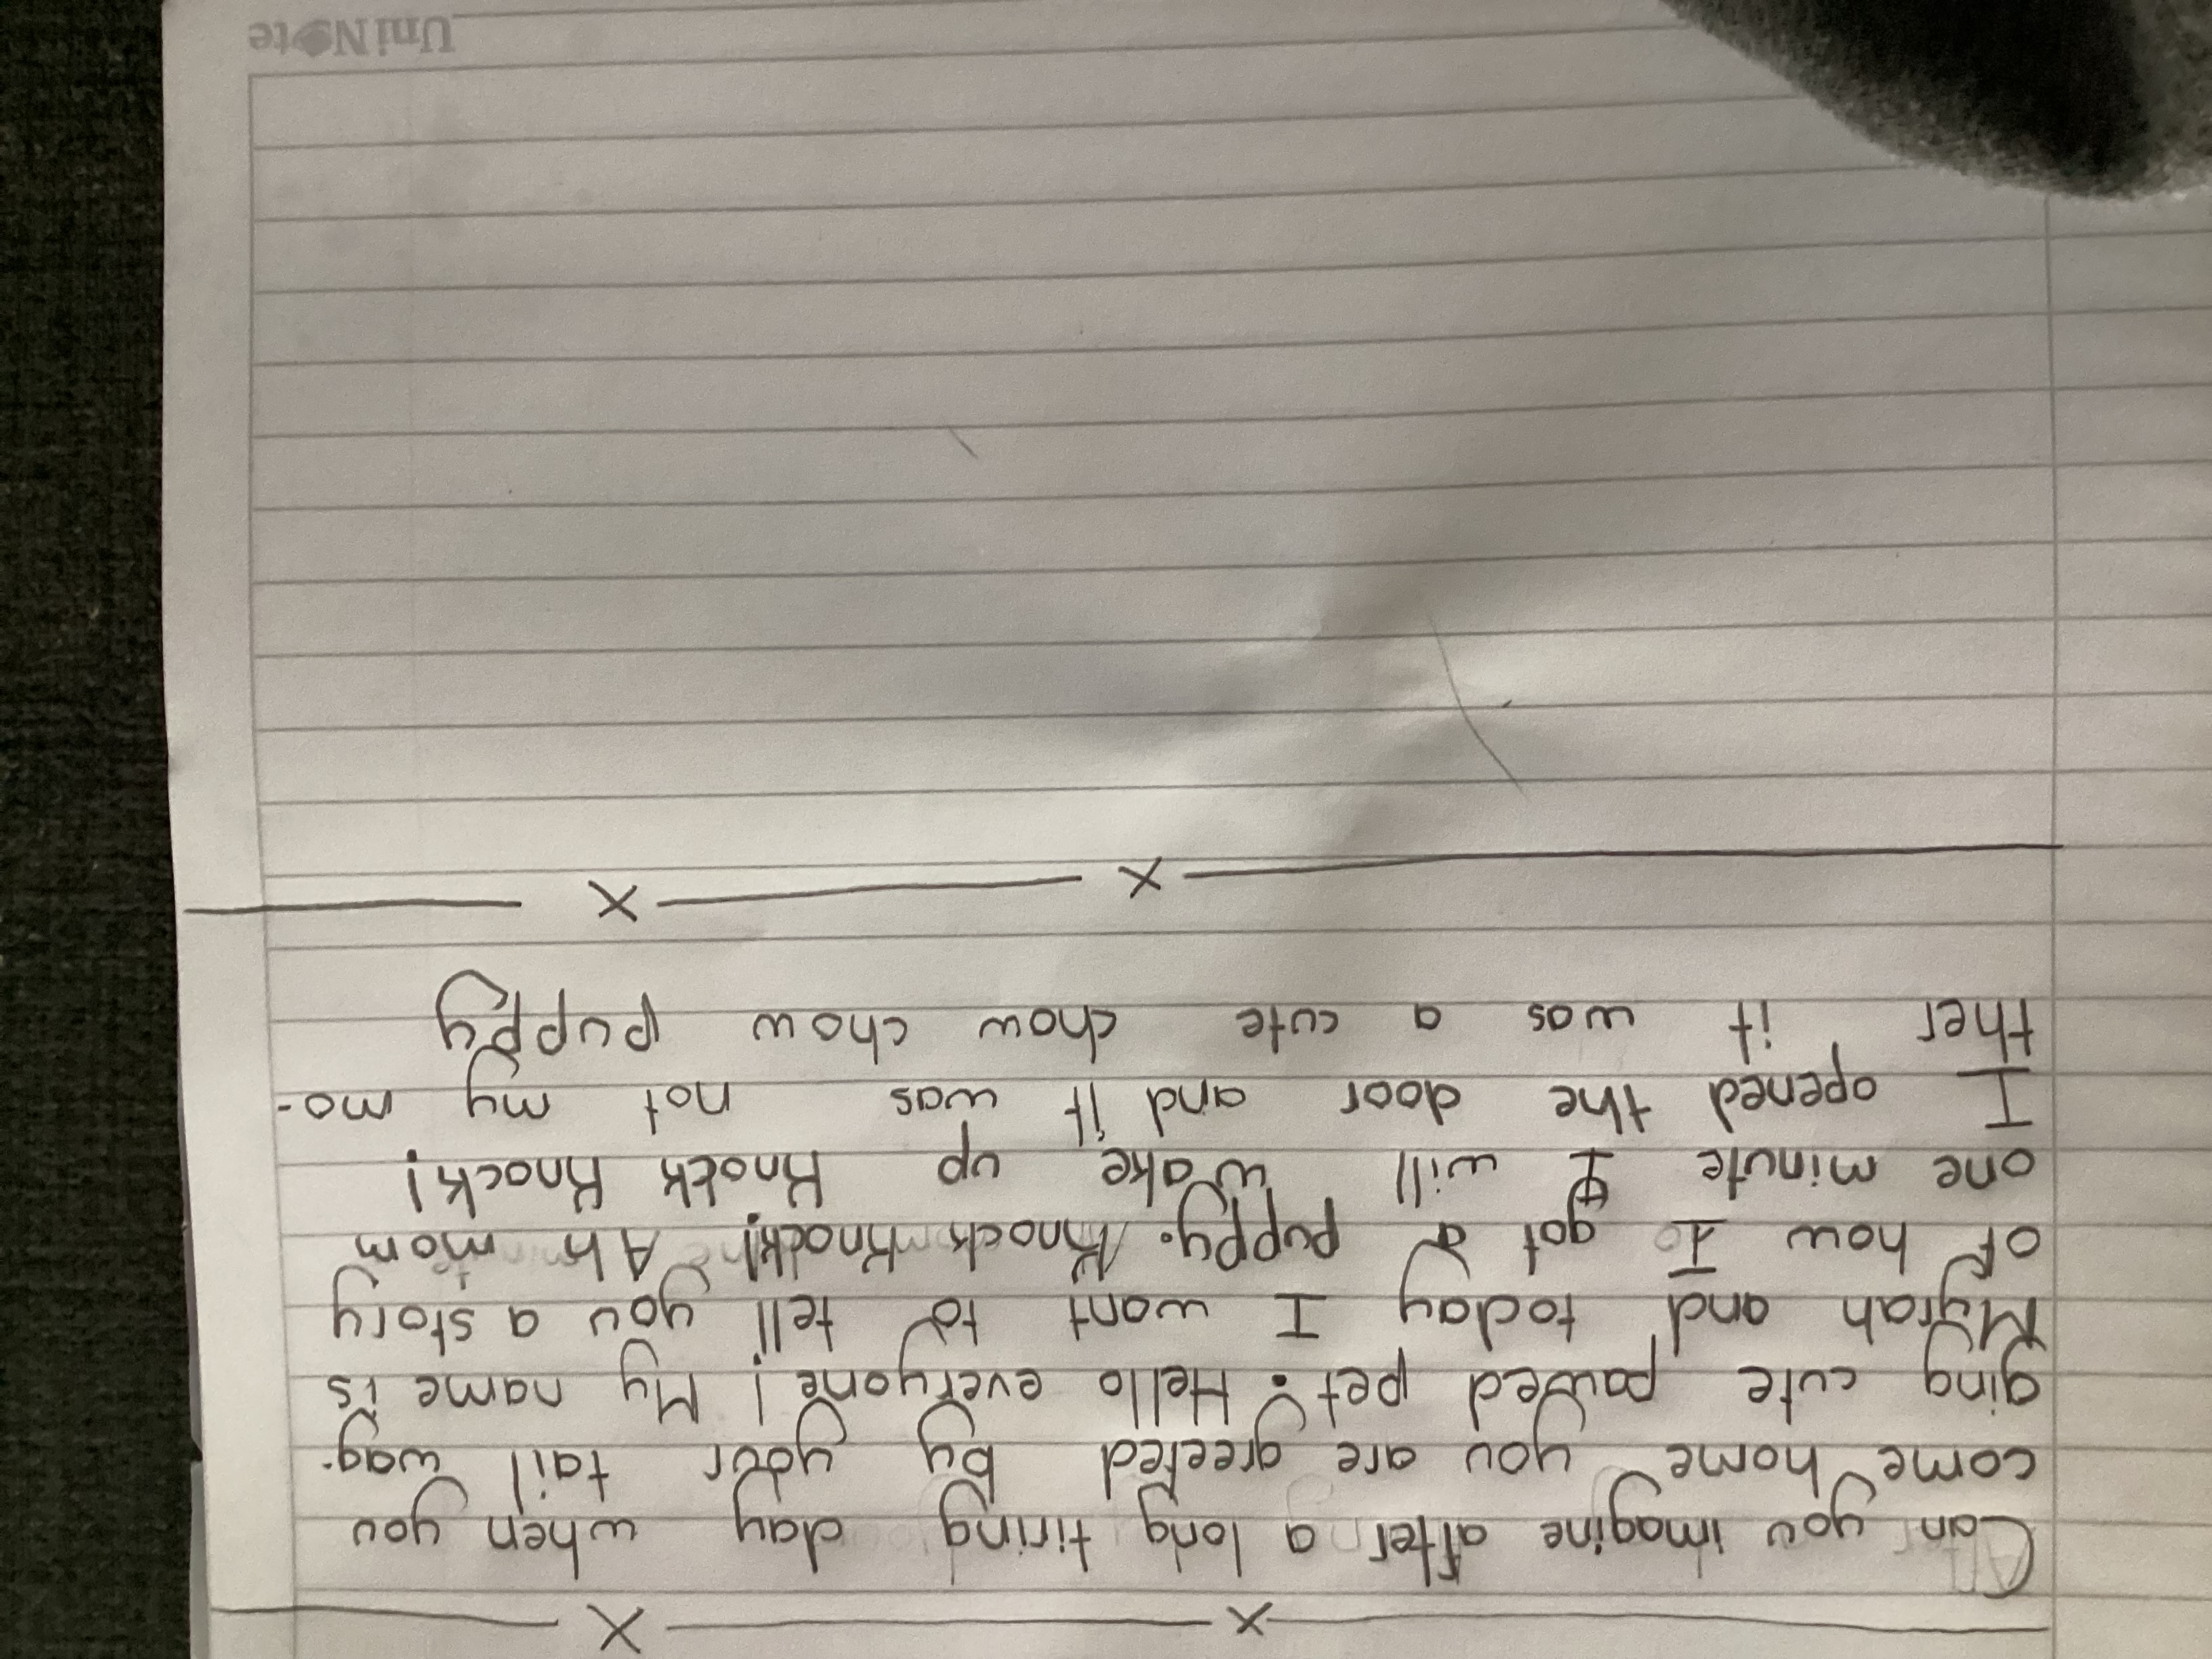 Can you imagine after a long tiring day when you
come home you are greeted by your tail wag-
ging cute pawed pet. Hello everyone! My name is
Myrah and today I want to tell you a story
of how I got a puppy. Knock Knock! Ah mom
one minute I will wake up Knock Knock!
I opened the door and it was not my mo-
ther it was a cute chow chow puppy
UniNote